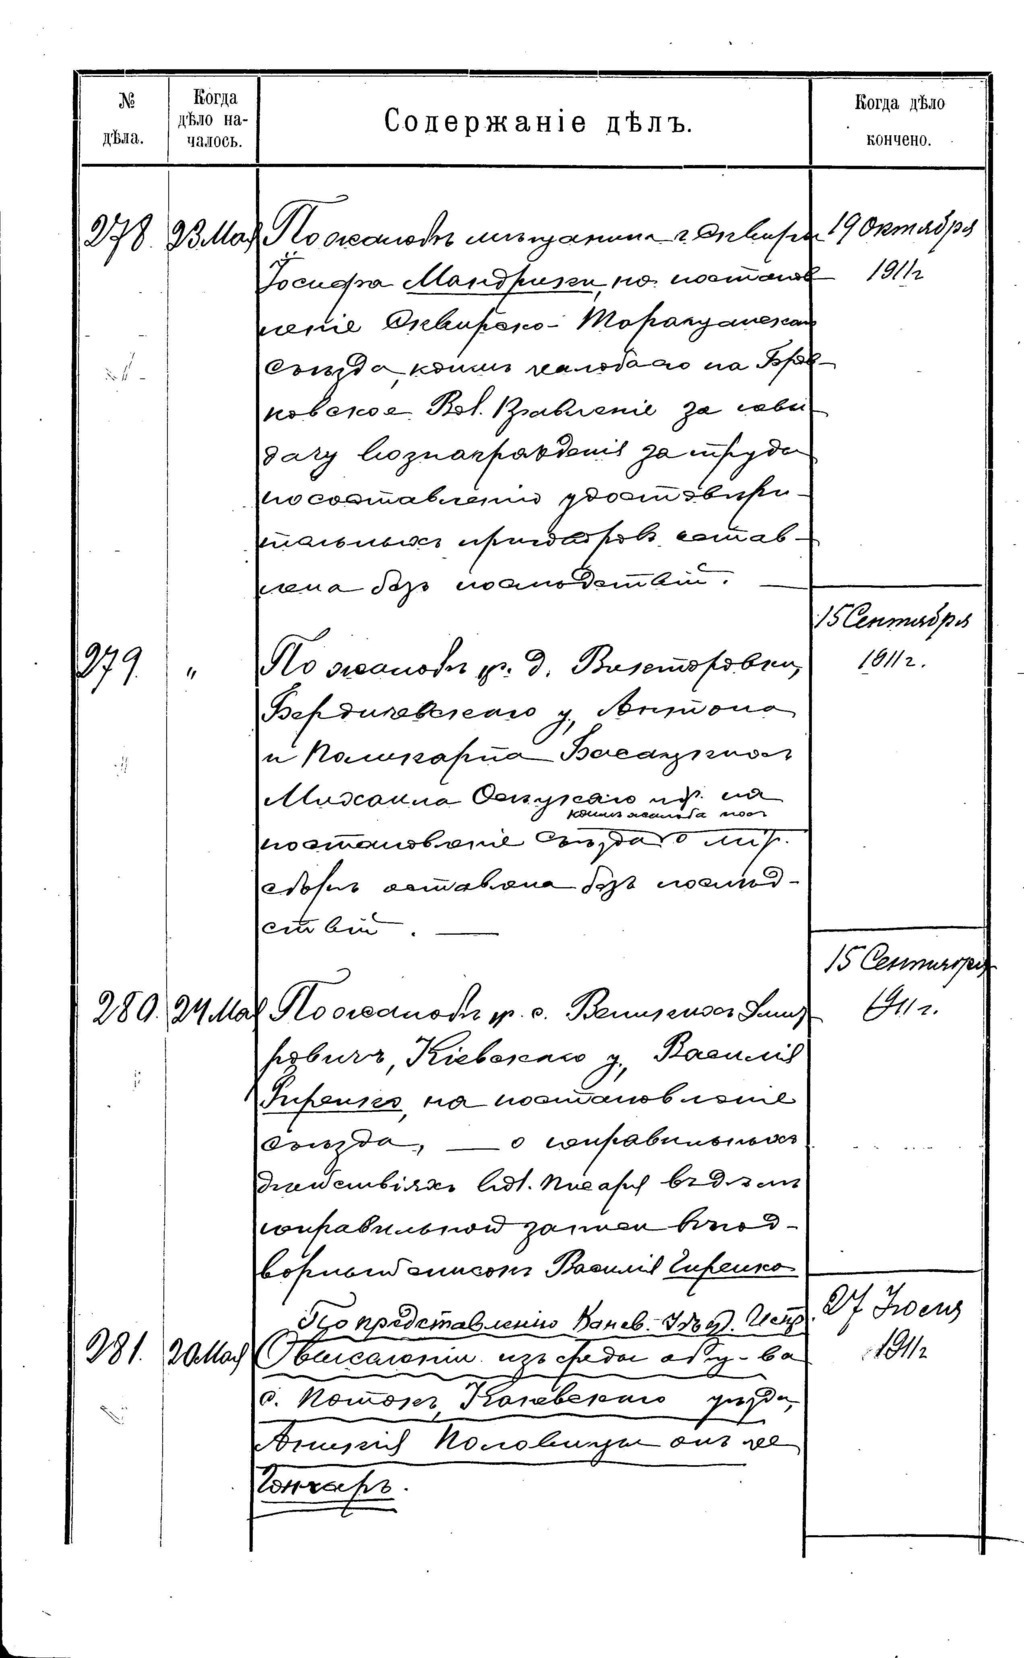 № дѣла.
Когда дѣло началось.
Содержаніе дѣлъ.
Когда дѣло кончено.
278. 23 Мая По жалобѣ мѣщанина г. Сквиры 19 Октября
Іосифа Мандрики, на постанов 1911 г
леніе Сквирско-Таращанскаго
съѣзда, коимъ жалоба его на
ковское Вол. Правленіе за невы
дачу вознагражденія за труды
по составленію удостовѣри-
тельныхъ приговоровъ остав-
лена безъ послѣдствій.
15 Сентября
279. " По жалобѣ кр. д. Викторовки, 1911 г.
Бердичевскаго у., Антона
и Поликарпа
Михаила на
коимъ жалоба
постановленіе Съѣзда о
сборѣ оставлена безъ послѣд-
ствій.
15 Сентября
280. 24 Мая По жалобѣ кр. с. Великихъ Дмит 1911 г.
ровичъ, Кіевскаго у., Василія
Гиренко, на постановленіе
Съѣзда, — о неправильныхъ
дѣйствіяхъ вол. писаря
неправильной записи въ под-
ворный списокъ Василія Гиренко
По представленію Канев. Уѣзд. 27 Іюля
281. 20 Мая О выселеніи изъ среды об-ва 1911 г
с. Потокъ, Каневскаго уѣзда,
Половинки онъ же
Гончаръ.